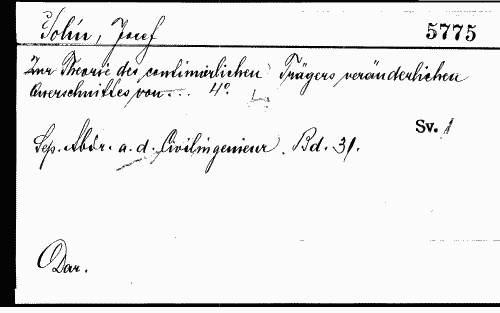 Šolín, Josef
5775
Zur Theorie des continuirlichen Trägers veränderlichen
Querschnittes von... 4°.
Sv. 1
Sep. Abdr. a. d. Civilingenieur. Bd. 31.
Dar.